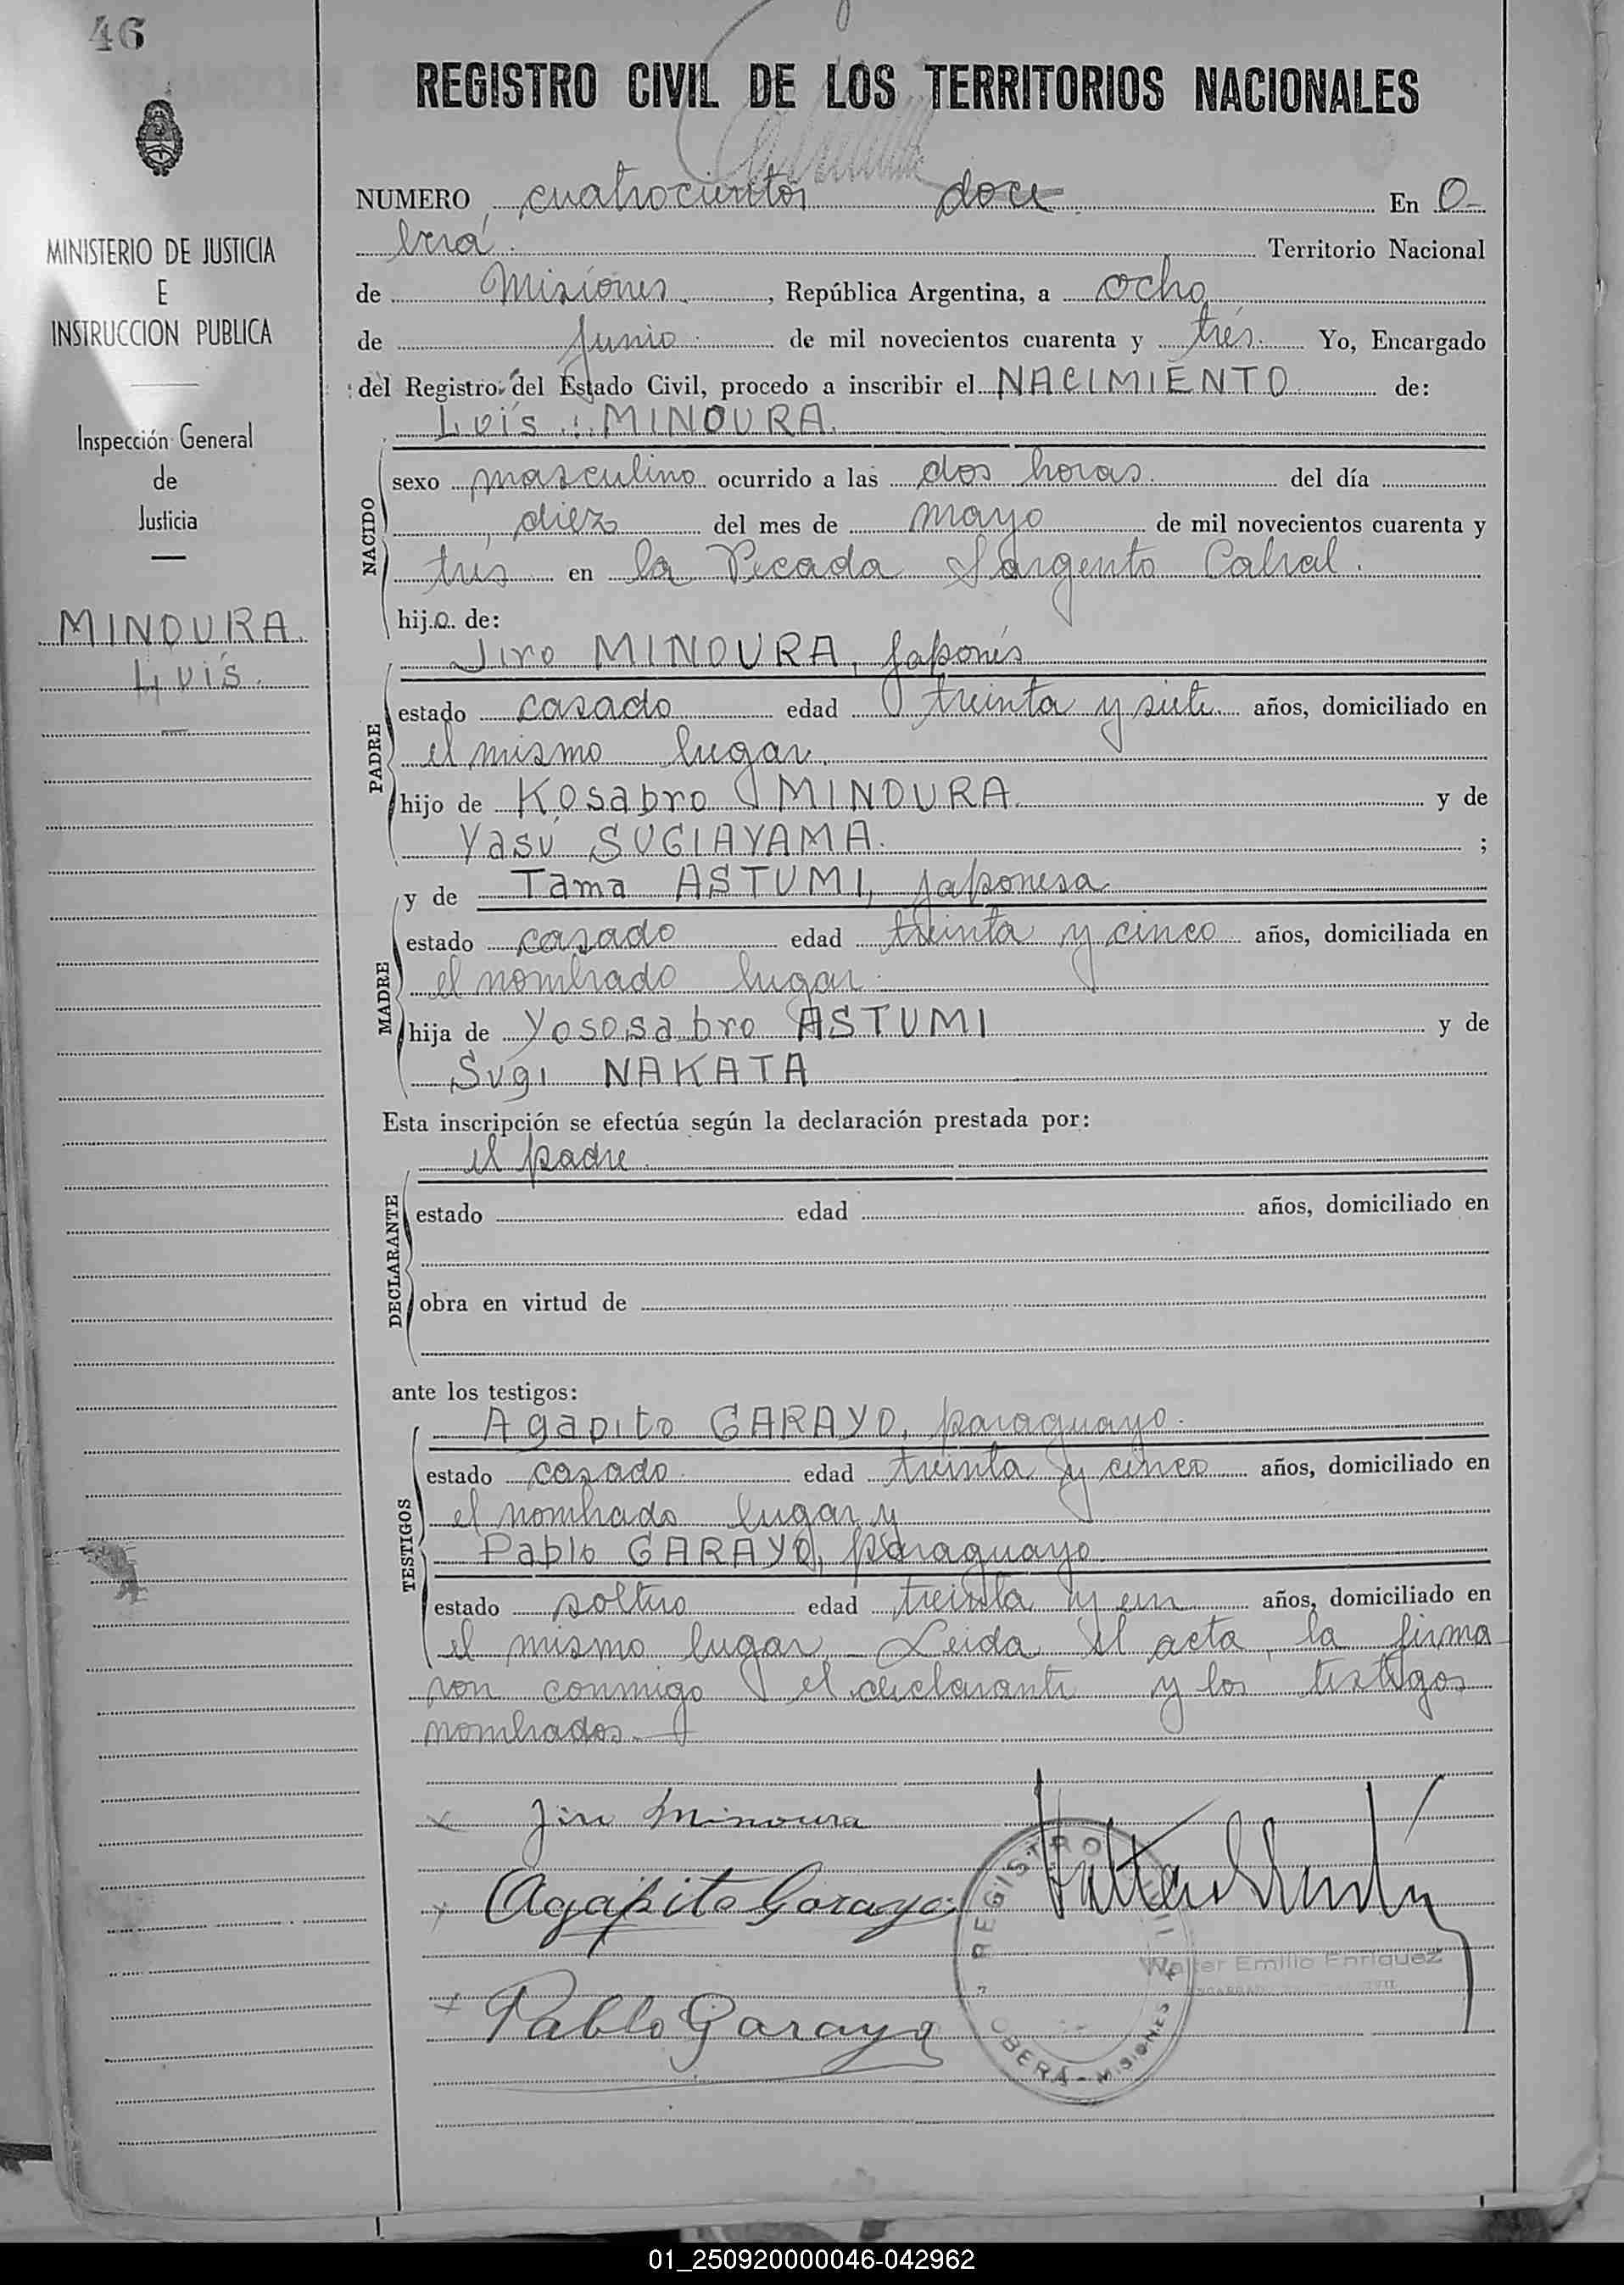 46
REGISTRO CIVIL DE LOS TERRITORIOS NACIONALES
NUMERO cuatrocientos doce En O-
berá. Territorio Nacional
de Misiones, República Argentina, a ocho
de Junio de mil novecientos cuarenta y tres. Yo, Encargado
del Registro del Estado Civil, procedo a inscribir el NACIMIENTO de:
Luis MINOURA.
NACIDO
sexo masculino ocurrido a las dos horas. del día
diez del mes de mayo de mil novecientos cuarenta y
tres en la Picada Sargento Cabral.
hijo de:
Jiro MINOURA, japonés
PADRE
estado casado edad treinta y siete años, domiciliado en
el mismo lugar.
hijo de Kosabro MINOURA. y de
Yasu SUGIAYAMA. ;
y de Tama ASTUMI, japonesa.
MADRE
estado casado edad treinta y cinco años, domiciliada en
el nombrado lugar.
hija de Yososabro ASTUMI y de
Sugi NAKATA
Esta inscripción se efectúa según la declaración prestada por:
el padre.
DECLARANTE
estado edad años, domiciliado en
obra en virtud de
ante los testigos:
Agapito GARAYO, paraguayo.
TESTIGOS
estado casado edad treinta y cinco años, domiciliado en
el nombrado lugar y
Pablo GARAYO, paraguayo.
estado soltero edad treinta y un años, domiciliado en
el mismo lugar. Leida el acta, la firma
ron conmigo el declarante y los testigos
nombrados.-
x Jiro Minoura
x Agapito Garayo
x Pablo Garayo
REGISTRO CIVIL
OBERÁ - MISIONES
Walter Emilio Enriquez
MINISTERIO DE JUSTICIA
E
INSTRUCCION PUBLICA
Inspección General
de
Justicia
MINOURA
Luis.
01_250920000046-042962